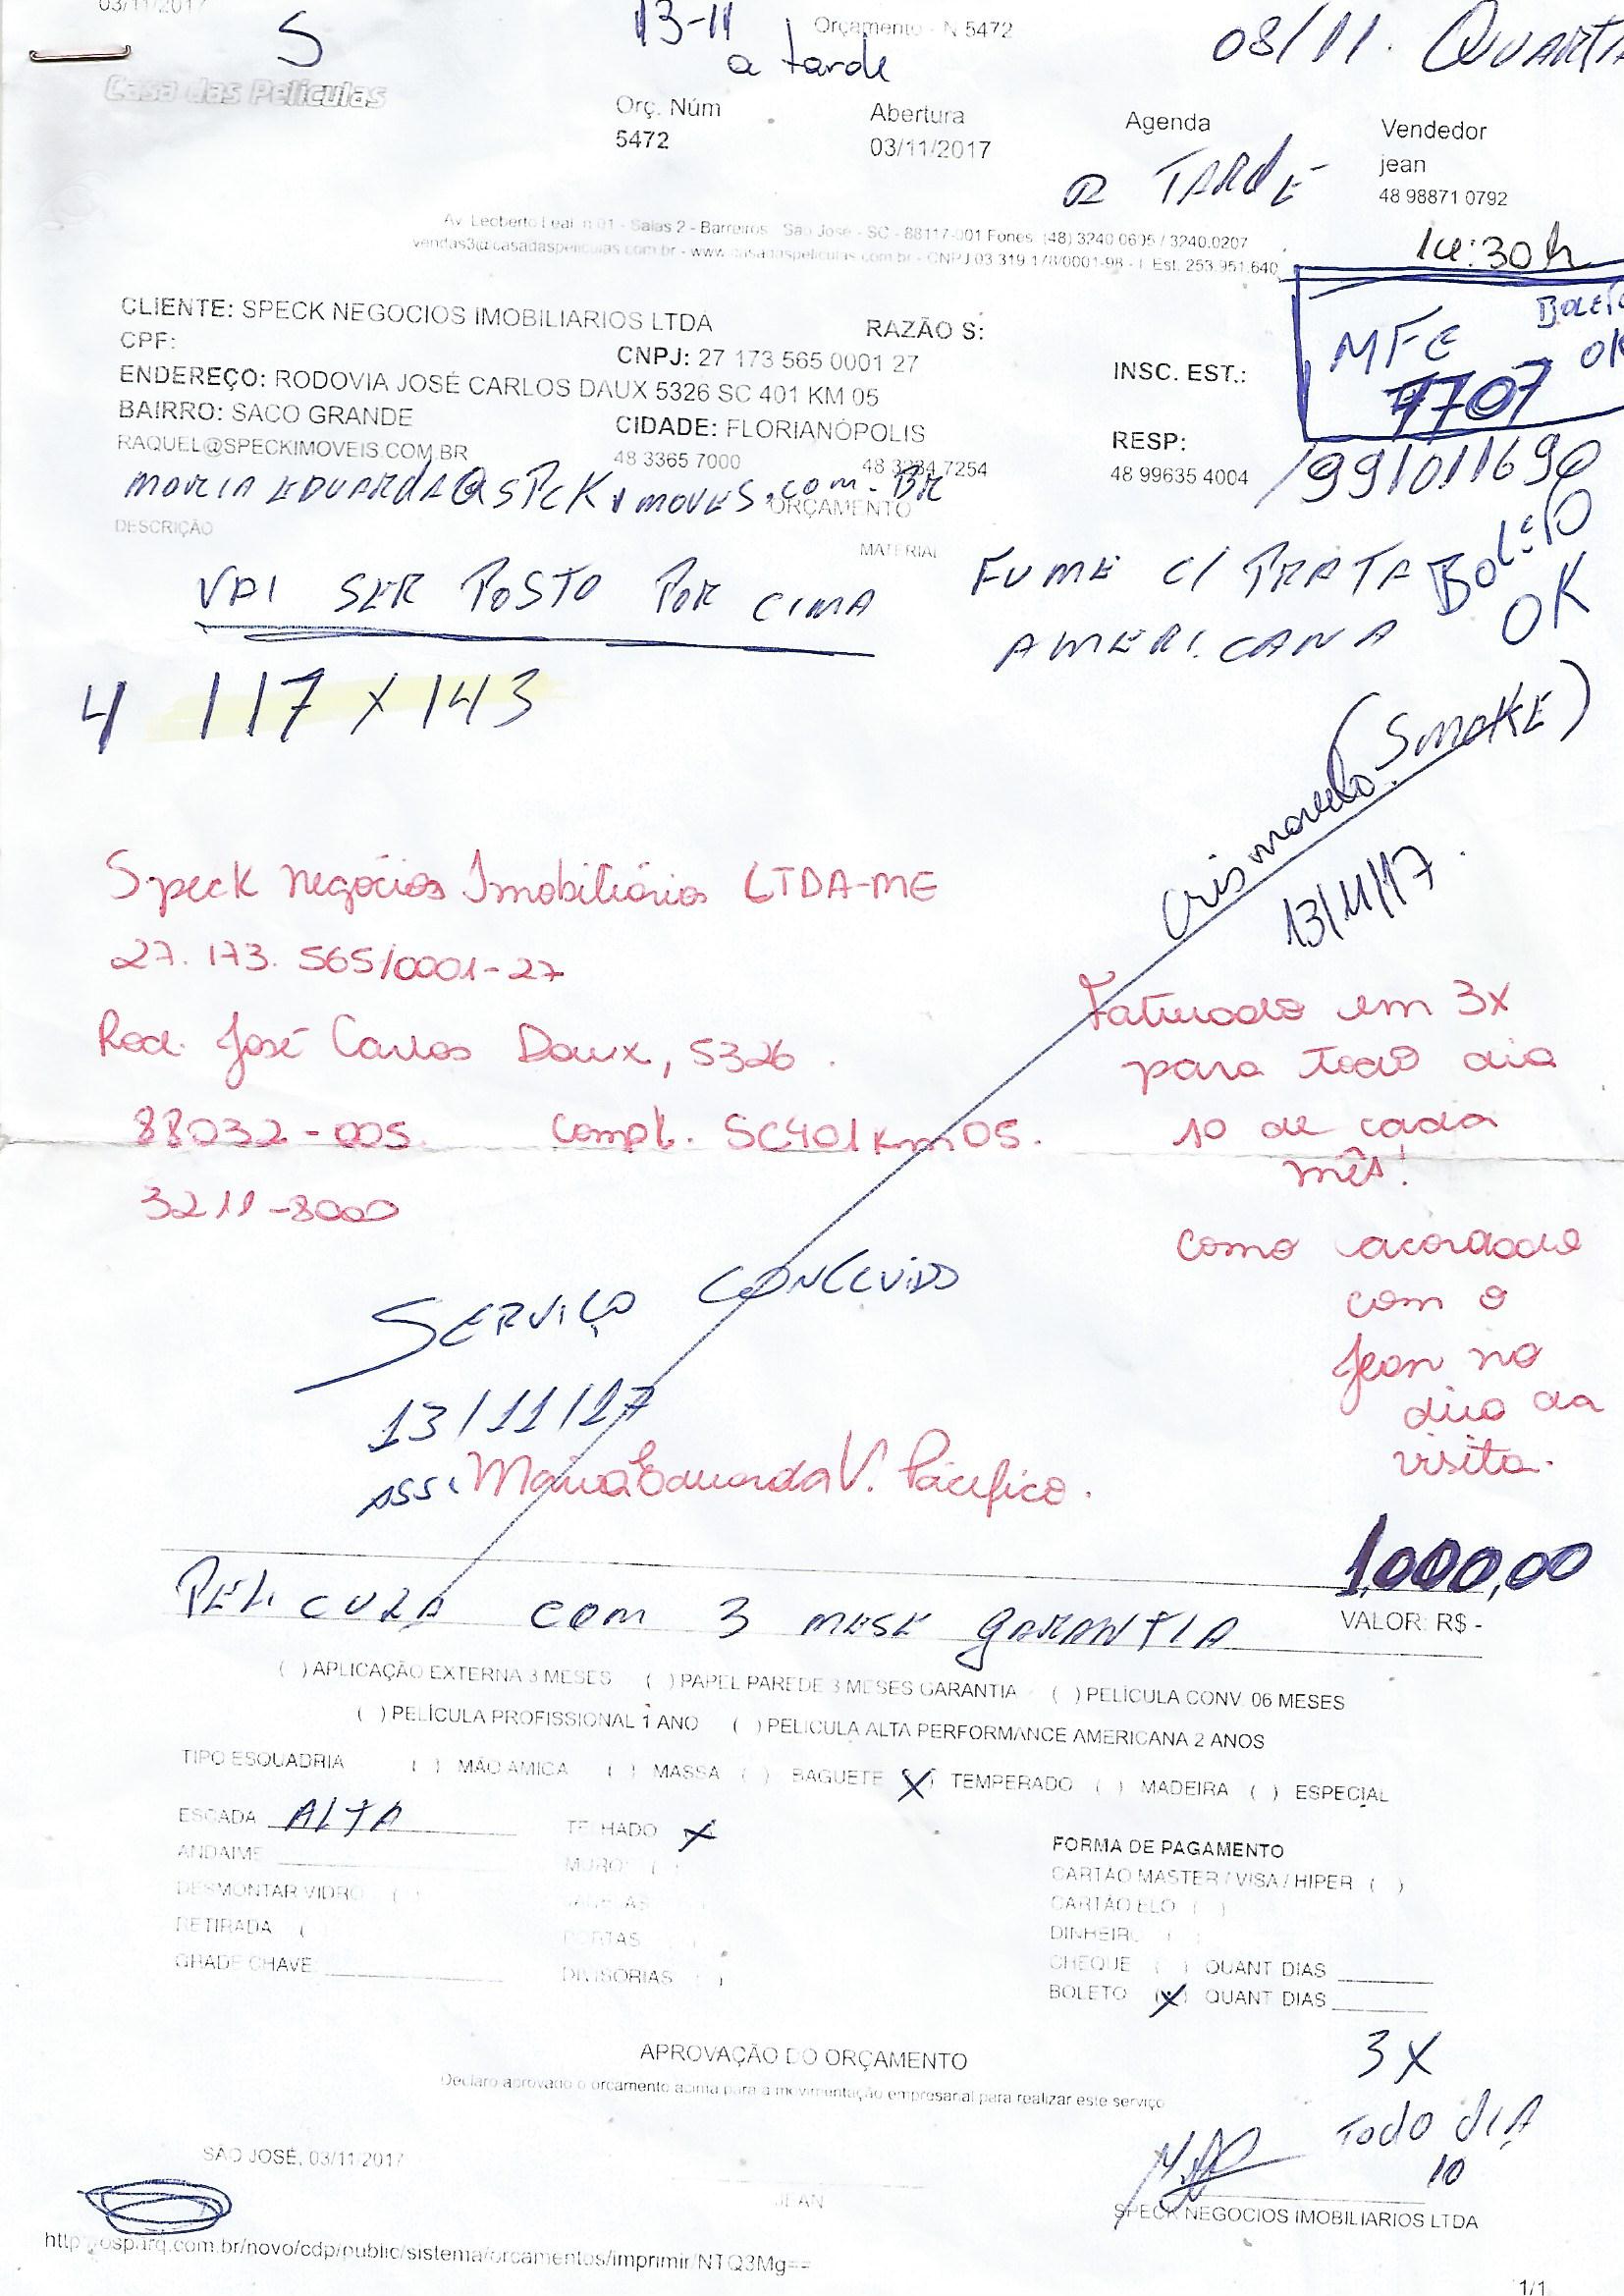 03/11/2017
S
13-11
a tarde
Orçamento - N 5472
08/11. QUARTA
Casa das Películas
Orç. Núm
5472
Abertura
03/11/2017
Agenda
a TARDE
Vendedor
jean
48 98871 0792
14:30h
Av. Leoberto Leal n 01 - Salas 2 - Barreiros - São José - SC - 88117-001 Fones: (48) 3240.0695 / 3240.0207
vendas3@casadaspeliculas.com.br - www.casadaspeliculas.com.br - CNPJ 03.319.178/0001-98 - I. Est. 253.951.640
BOLETO
OK
MFE
7707
CLIENTE: SPECK NEGOCIOS IMOBILIARIOS LTDA
RAZÃO S:
CPF:
CNPJ: 27 173 565 0001 27
INSC. EST.:
ENDEREÇO: RODOVIA JOSÉ CARLOS DAUX 5326 SC 401 KM 05
BAIRRO: SACO GRANDE
CIDADE: FLORIANÓPOLIS
RESP:
RAQUEL@SPECKIMOVEIS.COM.BR
48 3365 7000
48 3284 7254
48 99635 4004
/991011690
MARIA EDUARDA@SPCKIMOVES.COM.BR
ORÇAMENTO
DESCRIÇÃO
MATERIAL
VAI SER POSTO POR CIMA
FUME C/ PRATA
AMERICANA
BOLETO
OK
(SMOKE)
4 117 x 143
13/11/17.
Speck Negócios Imobiliários LTDA-ME
27.173.565/0001-27
Rod. José Carlos Daux, 5326.
88032-005. Compl. SC401 km 05.
3211-8000
Faturado em 3x
para todo dia
10 de cada
mês!
como acordado
com o
Jean no
dia da
visita.
SERVIÇO CONCLUIDO
13/11/17
ASS: Maria Eduarda V. Pacífico.
1.000,00
VALOR: R$ -
PELICULA COM 3 MESE GARANTIA
( ) APLICAÇÃO EXTERNA 3 MESES ( ) PAPEL PAREDE 3 MESES GARANTIA ( ) PELÍCULA CONV. 06 MESES
( ) PELÍCULA PROFISSIONAL 1 ANO ( ) PELICULA ALTA PERFORMANCE AMERICANA 2 ANOS
TIPO ESQUADRIA ( ) MÃO AMICA ( ) MASSA ( ) BAGUETE (X) TEMPERADO ( ) MADEIRA ( ) ESPECIAL
ESCADA ALTA
TELHADO X
ANDAIME
MURO ( )
DESMONTAR VIDRO ( )
JANELAS
RETIRADA (
PORTAS
GRADE CHAVE
DIVISORIAS ( )
FORMA DE PAGAMENTO
CARTÃO MASTER / VISA / HIPER ( )
CARTÃO ELO ( )
DINHEIRO ( )
CHEQUE ( ) QUANT DIAS
BOLETO (X) QUANT DIAS
3X
TODO DIA
10
APROVAÇÃO DO ORÇAMENTO
Declaro aprovado o orcamento acima para a movimentação empresarial para realizar este serviço
SÃO JOSÉ, 03/11/2017
JEAN
SPECK NEGOCIOS IMOBILIARIOS LTDA
http://osparq.com.br/novo/cdp/public/sistema/orcamentos/imprimir/NTQ3Mg==
1/1